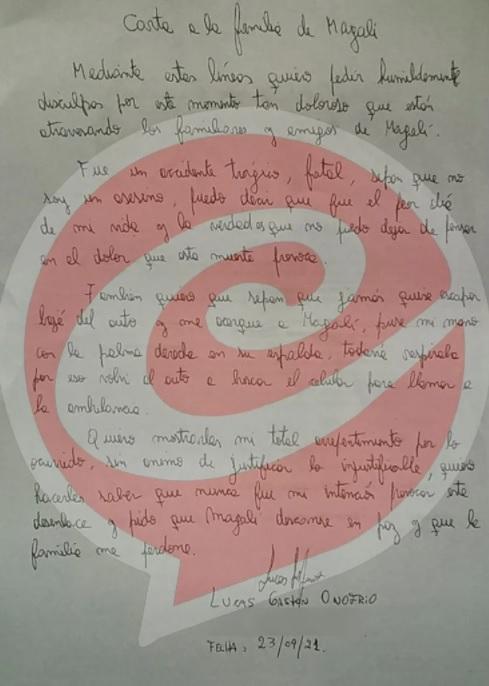 Carta a la familia de Magali
Mediante estas líneas quiero pedir humildemente
disculpas por este momento tan doloroso que están
atravesando los familiares y amigos de Magalí.
Fue un accidente trágico, fatal, sepan que no
soy un asesino, puedo decir que fue el peor día
de mi vida y la verdad es que no puedo dejar de pensar
en el dolor que esta muerte provoca.
Tambien quiero que sepan que jamás quise escapar
bajé del auto y me acerque a Magalí, puse mi mano
con la palma derecha en su espalda, todavía respiraba
por eso volví al auto a buscar el celular para llamar a
la ambulancia.
Quiero mostrarles mi total arrepentimiento por lo
ocurrido, sin animo de justificar lo injustificable, quiero
hacerles saber que nunca fue mi intención provocar este
desenlace y pido que Magalí descanse en paz y que la
familia me perdone.
LUCAS GASTÓN ONOFRIO
FECHA: 23/09/21.